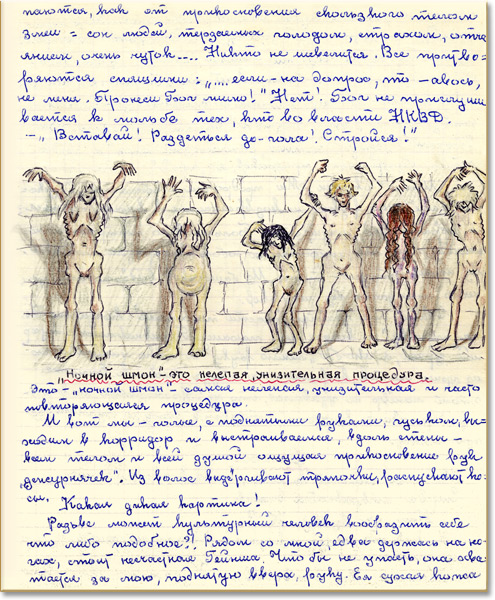 паются, как от прикосновения скользкого телом
змеи = сон людей, терзаемых голодом, страхом, отча
янием, очень чуток.... Никто не шевелится. Все притво-
ряются спящими: „....если - на допрос, то - авось,
не меня. Пронеси Бог мимо!" Нет! Бог не прислуши
вается к мольбе тех, кто во власти НКВД.
-„ Вставай! Раздеться до-гола! Стройся!"
„Ночной шмон"-это нелепая, унизительная процедура.
Это - „ночной шмон" - самая нелепая, унизительная и часто
повторяющаяся процедура.
И вот мы - голые, с поднятыми руками, гуськом, вы-
ходим в корридор и выстраиваемся, вдоль стены -
всем телом и всей душой ощущая прикосновение рук
„дежурнячек". Из волос выдёргивают тряпочки, распускают ко-
сы. Какая дикая картина!
Разьве может культурный человек вообразить себе
что либо подобное?! Рядом со мной, едва держась на но-
гах, стоит несчастная Гейниша. Что бы не упасть, она хва-
тается за мою, поднятую вверх, руку. Ея сухая кожа